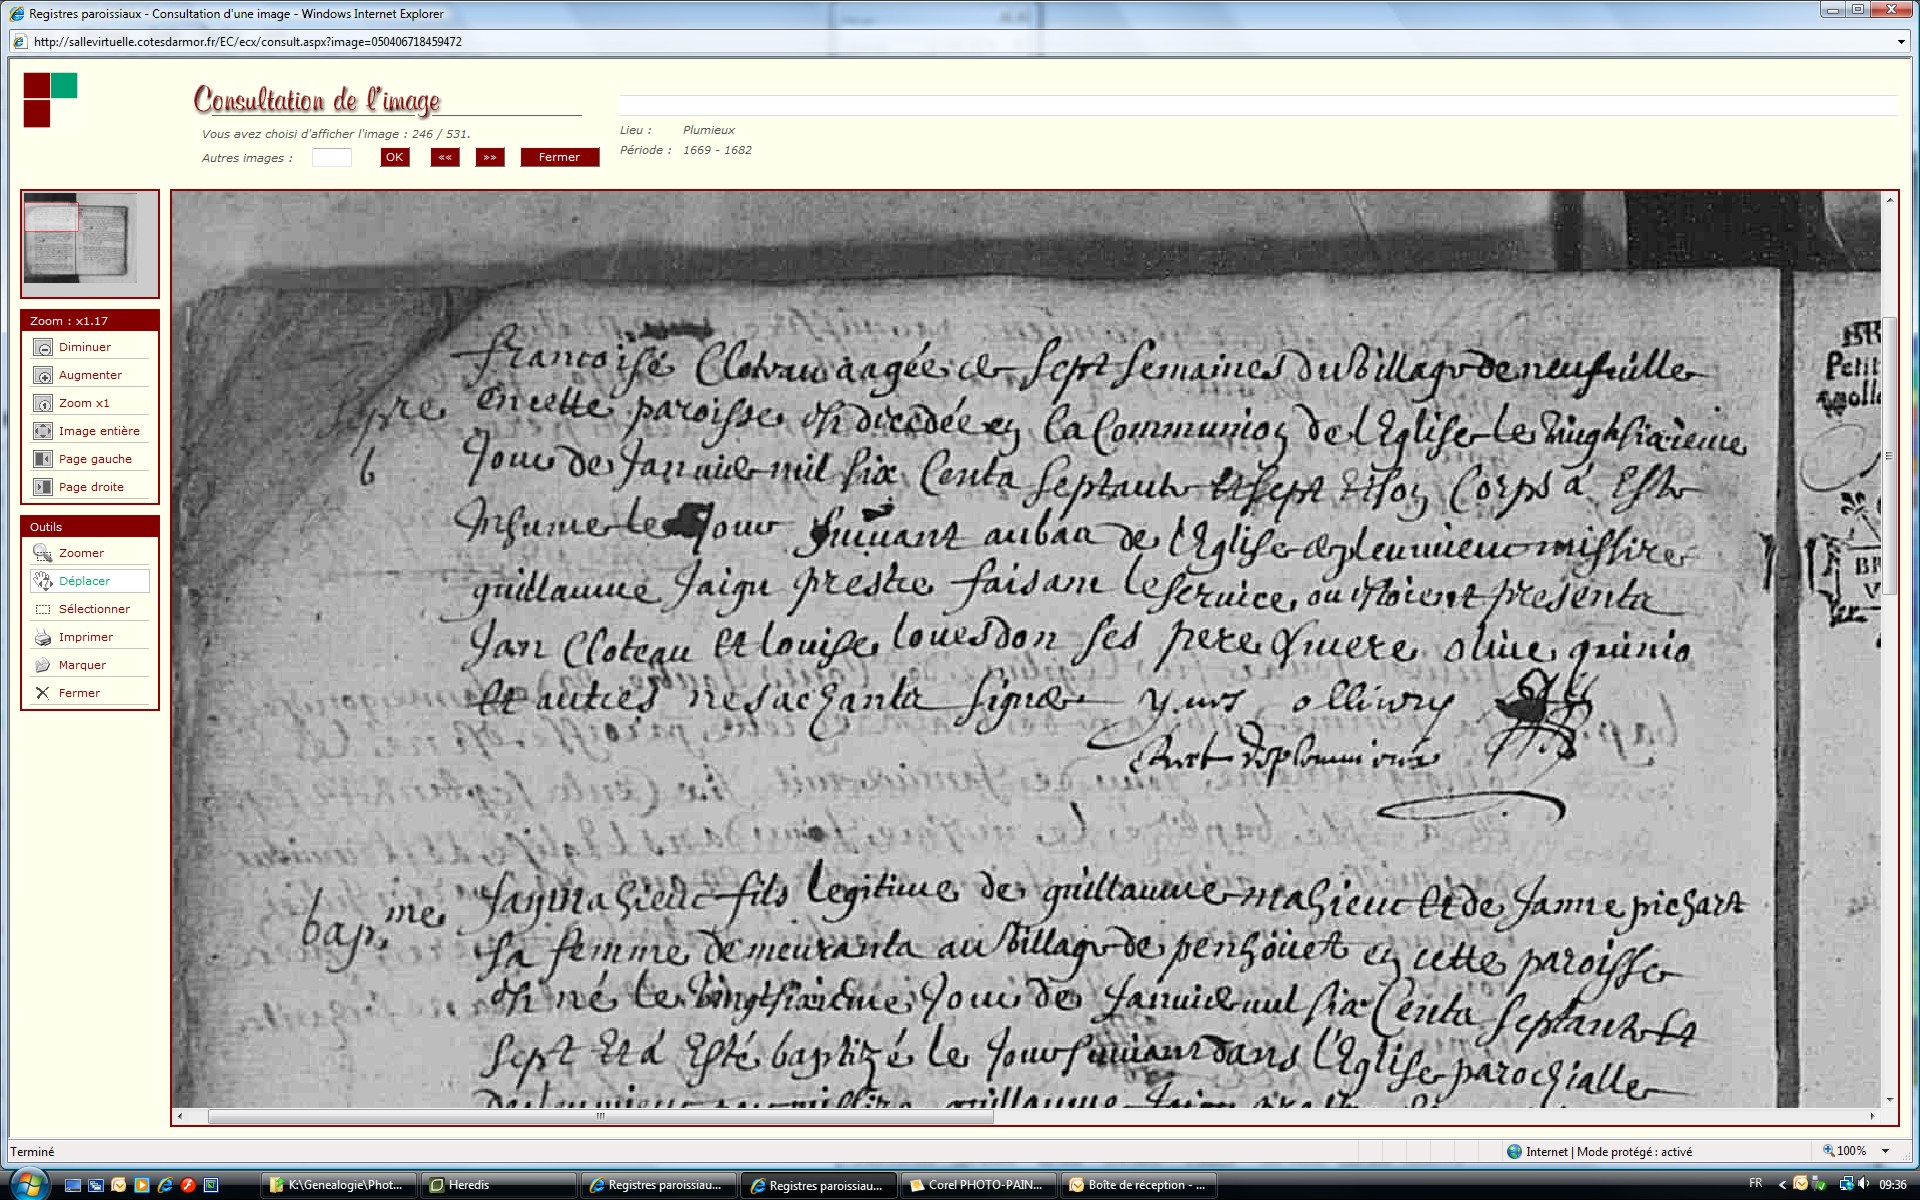 Registres paroissiaux - Consultation d'une image - Windows Internet Explorer
http://sallevirtuelle.cotesdarmor.fr/EC/ecx/consult.aspx?image=050406718459472
Consultation de l'image
Vous avez choisi d'afficher l'image : 246 / 531.
Autres images :
OK
««
»»
Fermer
Lieu : Plumieux
Période : 1669 - 1682
Zoom : x1.17
Diminuer
Augmenter
Zoom x1
Image entière
Page gauche
Page droite
Outils
Zoomer
Déplacer
Sélectionner
Imprimer
Marquer
Fermer
francoise Cloteau aagée de sept semaines du Village de neufuille
en cette paroisse est decedée en la Communion de l'Eglise le Vingt sixieme
Jour de Januier mil six Cents septante et sept et son Corps a esté
Inhumé le Jour suiuant au bau de l'Eglise de pleumieuc missire
guillaume Jaigu prestre faisant le seruice, ou estoient presents
Jan Cloteau et louise louesdon ses pere & mere oliue quinio
et autres ne sachants signer y.urs olliury
bap.me
Jan mahieuc fils legitime de guillaume mahieuc et de Janne pichart
sa femme demeurants au Village de penhöuet en cette paroisse
est né le Vingt sixieme Jour de Januier mil six Cents septante et
sept et a esté baptizé le Jour suiuant dans l'Eglise parochialle
de pleumieuc par missire guillaume Jaigu
Petit
BR
Terminé
Internet | Mode protégé : activé
100%
K:\Genealogie\Phot...
Heredis
Registres paroissiau...
Registres paroissiau...
Corel PHOTO-PAIN...
Boîte de réception - ...
FR
09:36